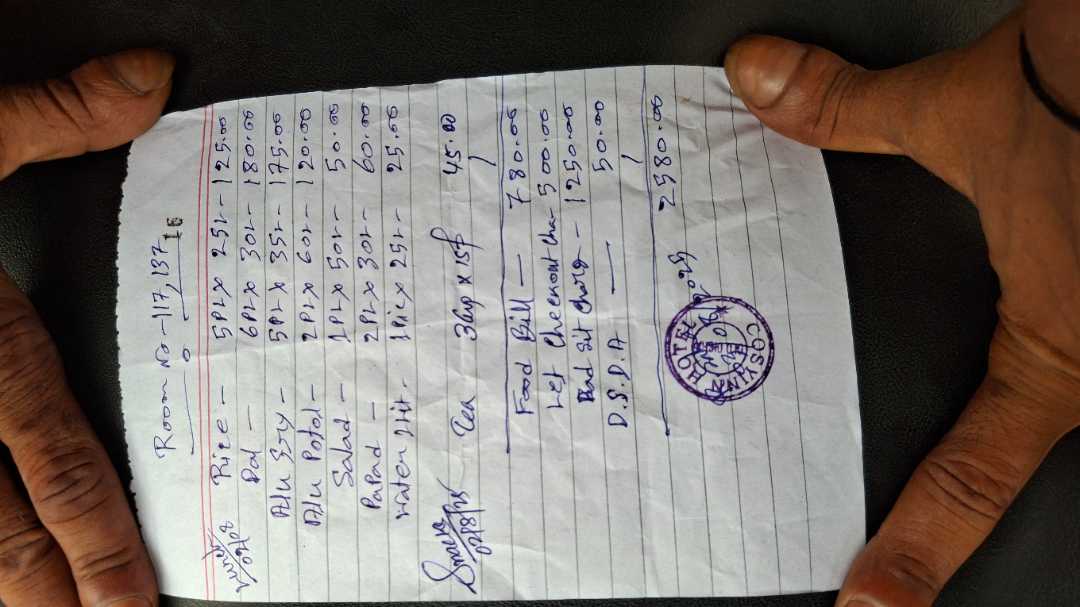 Room No-117,137
Lunch
02/08
Rice - 5Pl x 25/- - 125.00
Dal - 6Pl x 30/- - 180.00
Alu Fry - 5Pl x 35/- - 175.00
Alu Potol - 2Pl x 60/- - 120.00
Salad - 1Pl x 50/- - 50.00
Papad - 2Pl x 30/- 60.00
Water 2lit. 1Pic x 25/- 25.00
Snacks
02/8/25
Tea 3Cup x 15/ 45.00
Food Bill - 780.00
Let Checkout Char 500.00
Charg - 1250.00
D.S.D.A - 50.00
2580.00
HOTEL